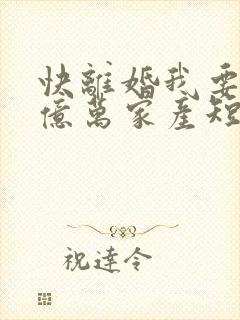 快離婚我要
億萬家產短
祝達令